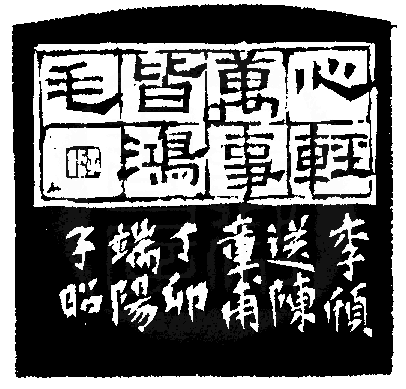 心輕
萬事
皆鴻
毛
李頎
送陳
章甫
丁卯
端陽
子昭